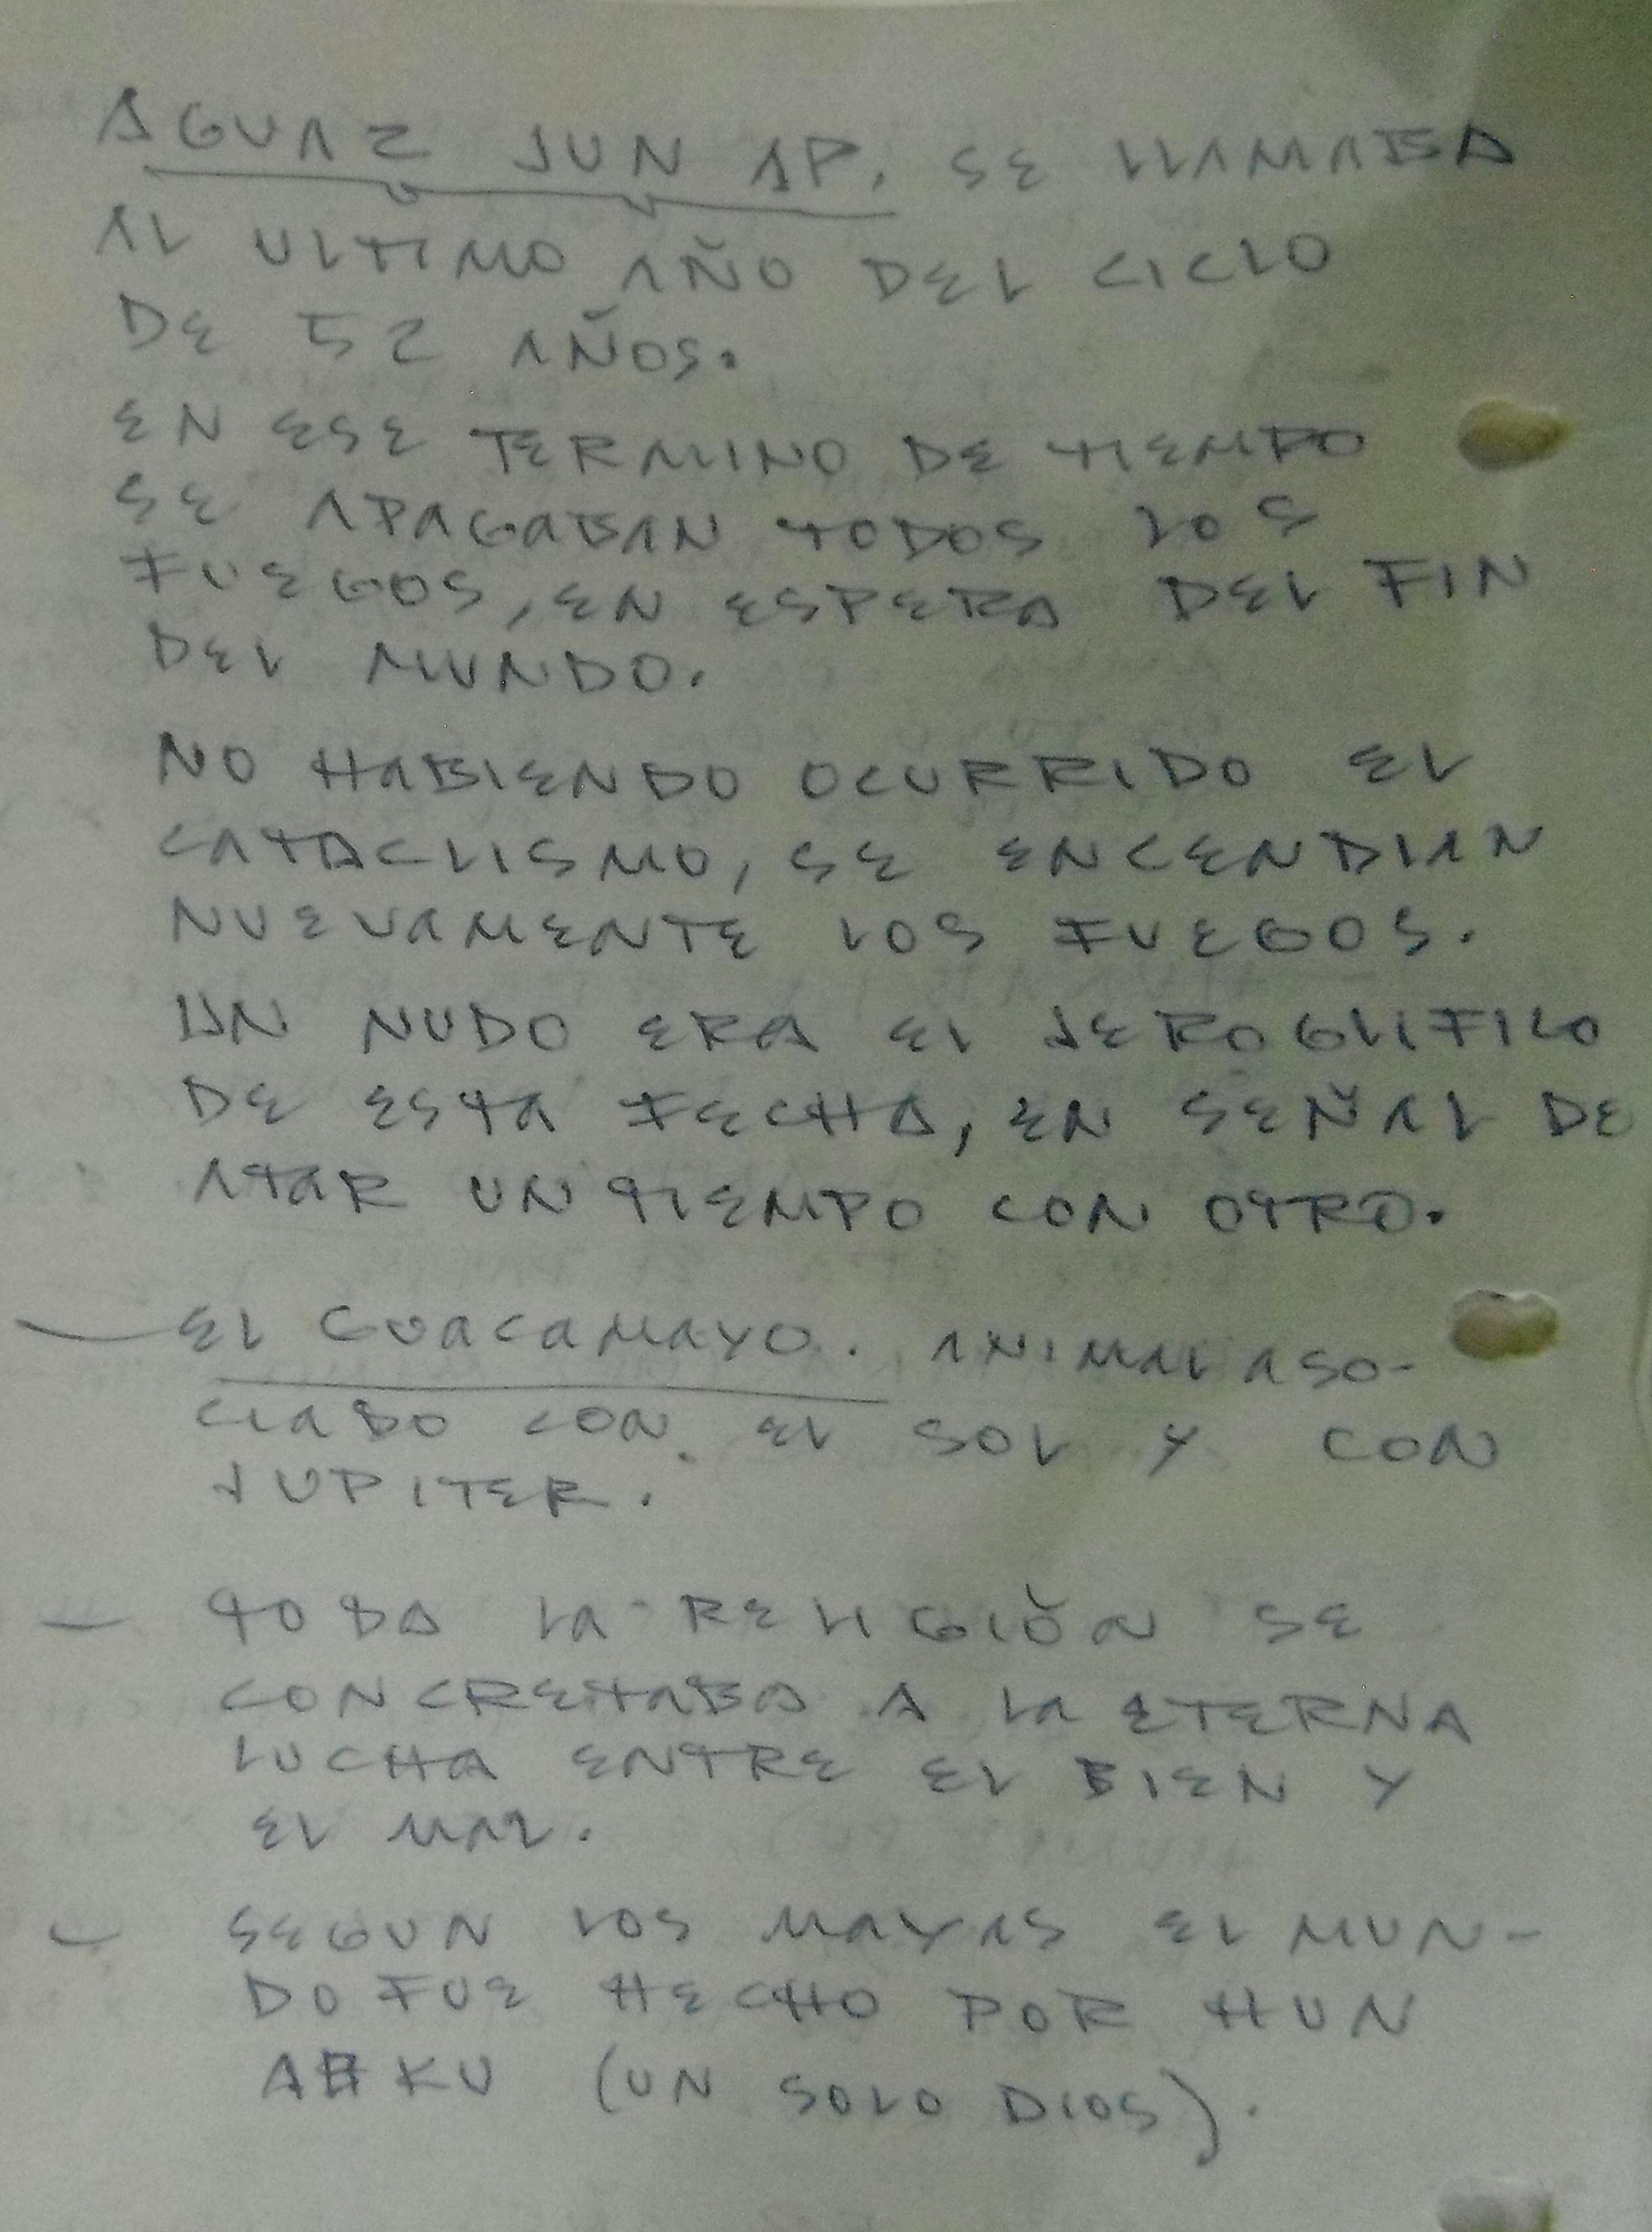 AGUAZ JUN AP. SE LLAMABA
AL ULTIMO AÑO DEL CICLO
DE 52 AÑOS.
EN ESE TERMINO DE TIEMPO
SE APAGABAN TODOS LOS
FUEGOS, EN ESPERA DEL FIN
DEL MUNDO.
NO HABIENDO OCURRIDO EL
CATACLISMO, SE ENCENDIAN
NUEVAMENTE LOS FUEGOS.
UN NUDO ERA EL JEROGLIFICO
DE ESTA FECHA, EN SEÑAL DE
ATAR UN TIEMPO CON OTRO.
— EL GUACAMAYO. ANIMAL ASO-
CIADO CON EL SOL Y CON
JUPITER.
— TODA LA RELIGIÓN SE
CONCRETABA A LA ETERNA
LUCHA ENTRE EL BIEN Y
EL MAL.
— SEGUN LOS MAYAS EL MUN-
DO FUE HECHO POR HUN
AB KU (UN SOLO DIOS).